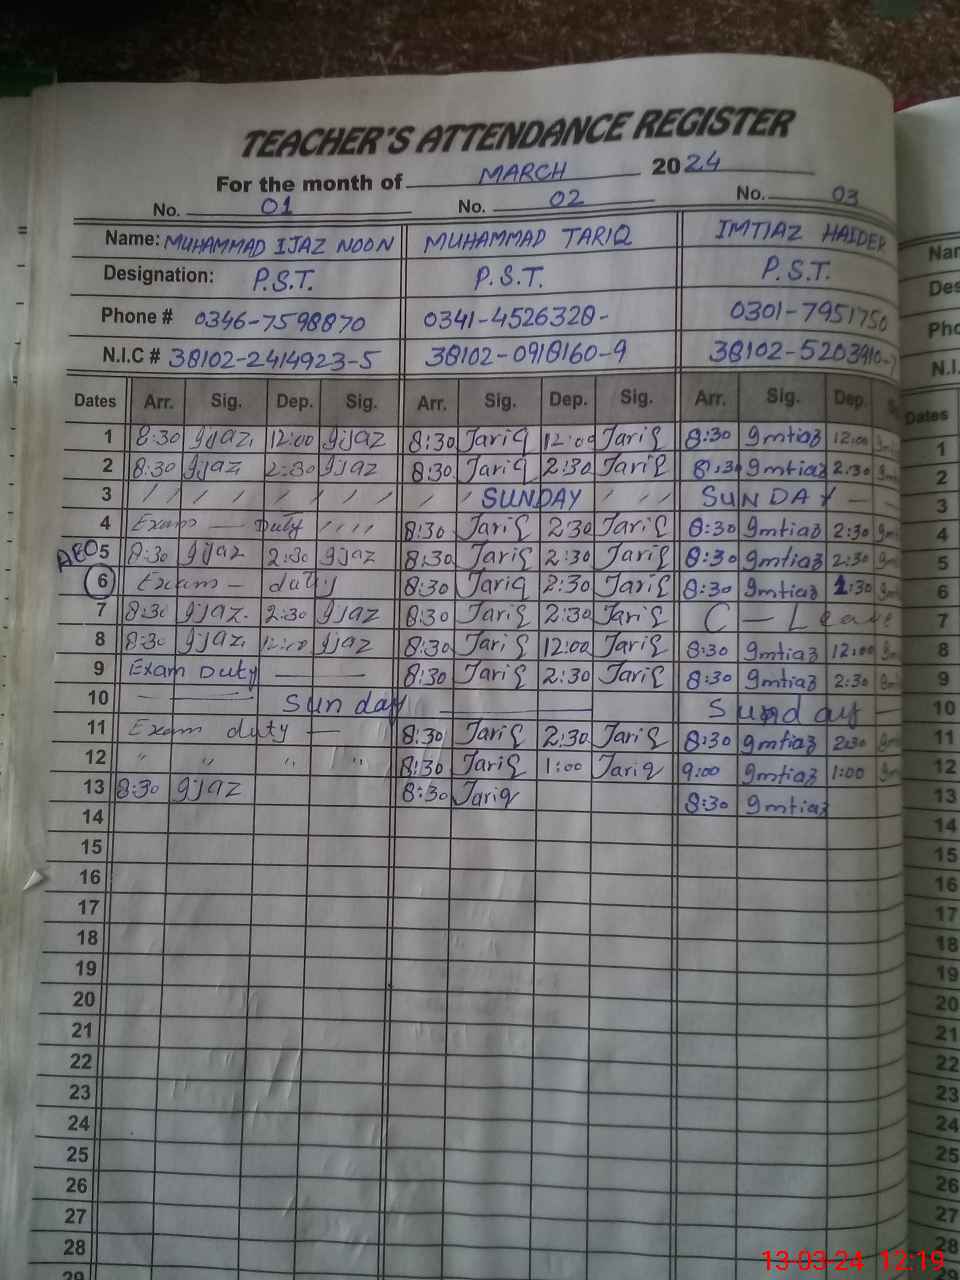 TEACHER'S ATTENDANCE REGISTER
For the month of MARCH 2024
No. 01 No. 02 No. 03
Name: MUHAMMAD IJAZ NOON MUHAMMAD TARIQ IMTIAZ HAIDER
Designation: P.S.T. P.S.T. P.S.T.
Phone # 0346-7598870 0341-4526328- 0301-7951750
N.I.C # 38102-2414923-5 38102-0918160-9 38102-5203910-
Dates Arr. Sig. Dep. Sig. Arr. Sig. Dep. Sig. Arr. Sig. Dep. Dates
1 8:30 Ijaz 12:00 Ijaz 8:30 Tariq 12:00 Tariq 8:30 Imtiaz 12:00 1
2 8:30 Ijaz 2:30 Ijaz 8:30 Tariq 2:30 Tariq 8:30 Imtiaz 2:30 2
3 / / / / / / / / SUNDAY / / / SUNDAY — 3
4 Exam — Duty / / / / 8:30 Tariq 2:30 Tariq 8:30 Imtiaz 2:30 4
AEO 5 8:30 Ijaz 2:30 Ijaz 8:30 Tariq 2:30 Tariq 8:30 Imtiaz 2:30 5
6 Exam — duty 8:30 Tariq 2:30 Tariq 8:30 Imtiaz :30 6
7 8:30 Ijaz 2:30 Ijaz 8:30 Tariq 2:30 Tariq C — Leave 7
8 8:30 Ijaz 12:00 Ijaz 8:30 Tariq 12:00 Tariq 8:30 Imtiaz 12:00 8
9 Exam Duty — — 8:30 Tariq 2:30 Tariq 8:30 Imtiaz 2:30 9
10 — — Sunday — Sunday — 10
11 Exam duty — 8:30 Tariq 2:30 Tariq 8:30 Imtiaz 2:30 11
12 " " " " 8:30 Tariq 1:00 Tariq 9:00 Imtiaz 1:00 12
13 8:30 Ijaz 8:30 Tariq 8:30 Imtiaz 13
14 14
15 15
16 16
17 17
18 18
19 19
20 20
21 21
22 22
23 23
24 24
25 25
26 26
27 27
28 28
29
13-03-24 12:19